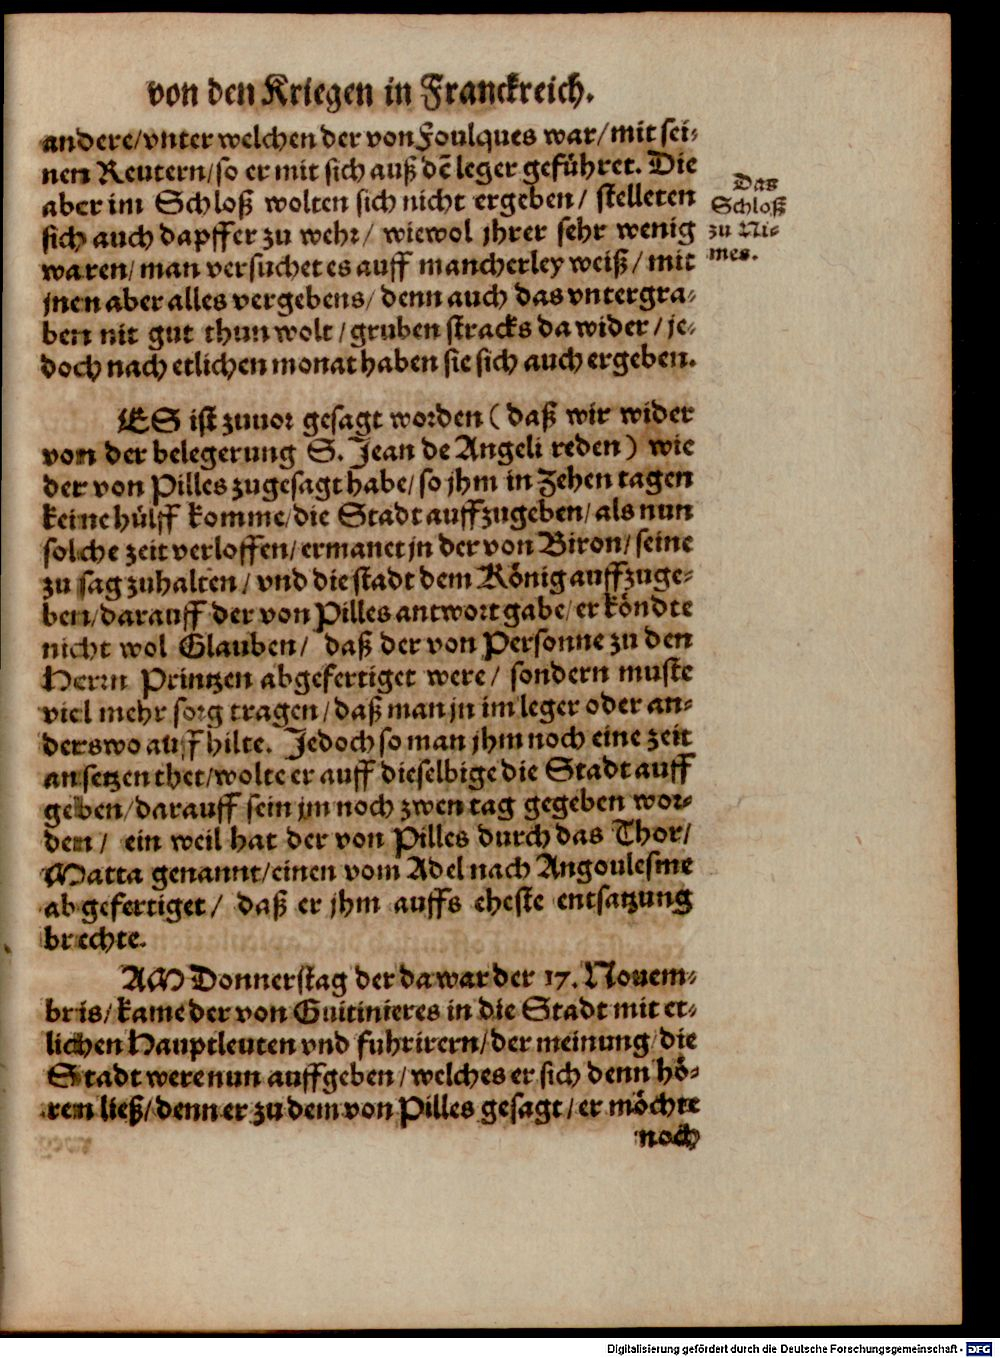 von den Kriegen in Franckreich.
andere/vnter welchen der von Foulques war/mit sei-
nen Reutern/so er mit sich auß dē leger geführet. Die
aber im Schloß wolten sich nicht ergeben/ stelleten
sich auch dapffer zu wehr/ wiewol jhrer sehr wenig
waren/man versuchet es auff mancherley weiß/mit
jnen aber alles vergebens/denn auch das vntergra-
ben nit gut thun wolt/gruben stracks da wider/je-
doch nach etlichen monat haben sie sich auch ergeben.
Das
Schloß
zu Ni-
mes.
ES ist zuuor gesagt worden (daß wir wider
von der belegerung S. Jean de Angeli reden) wie
der von Pilles zugesagt habe/so jhm in Zehen tagen
keine hülff komme/die Stadt auffzugeben/als nun
solche zeit verloffen/ermanet jn der von Biron/seine
zu sag zuhalten/vnd die stadt dem König auffzuge-
ben/darauff der von Pilles antwort gabe/er köndte
nicht wol Glauben/ daß der von Personne zu den
Herrn Printzen abgefertiget were/ sondern muste
viel mehr sorg tragen/daß man jn im leger oder an-
derswo auffhilte. Jedoch so man jhm noch eine zeit
ansetzen thet/wolte er auff dieselbige die Stadt auff
geben/darauff sein jm noch zwen tag gegeben wor-
den/ ein weil hat der von Pilles durch das Thor/
Matta genannt/einen vom Adel nach Angoulesme
abgefertiget/ daß er jhm auffs eheste entsatzung
brechte.
AM Donnerstag der da war der 17. Nouem-
bris/kame der von Guitinieres in die Stadt mit et-
lichen Hauptleuten vnd fuhrirern/der meinung/die
Stadt were nun auffgeben/welches er sich denn hö-
ren ließ/denn er zu dem von Pilles gesagt/er möchte
noch
Digitalisierung gefördert durch die Deutsche Forschungsgemeinschaft - DFG